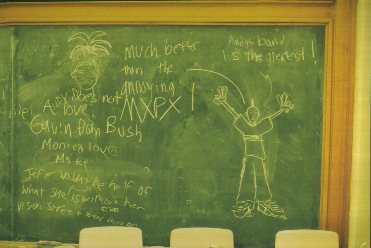 Much better
than the
annoying
MXPX !
Andys band
is the greatest !
does not
love
Gavin from Bush
Monica loves
Mike
Jeff wouldn't be half of
what she is without her